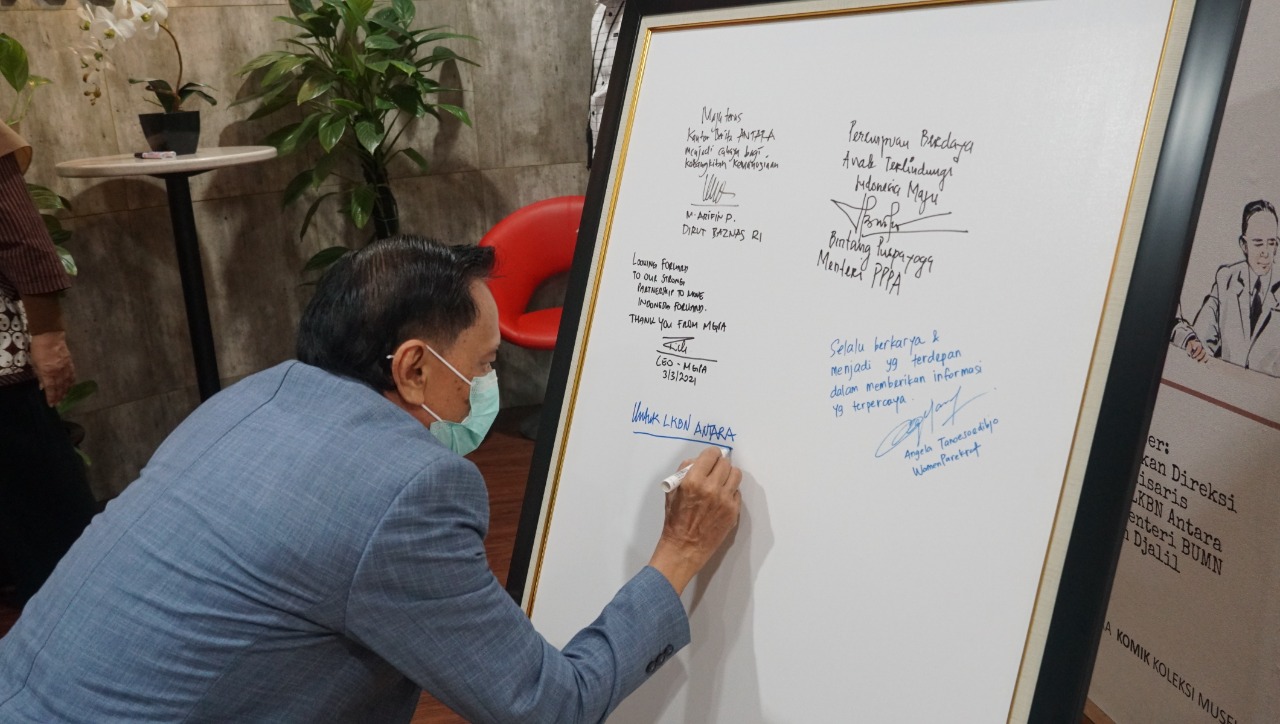 Maju terus
Kantor Berita ANTARA
menjadi cahaya bagi
kebangkitan kemanusiaan
M. ARIFIN P.
DIRUT BAZNAS RI
LOOKING FORWARD
TO OUR STRONG
PARTNERSHIP TO MOVE
INDONESIA FORWARD.
THANK YOU FROM MGPA
CEO - MGPA
3/3/2021
Untuk LKBN ANTARA
Perempuan Berdaya
Anak Terlindungi
Indonesia Maju
Bintang Puspayoga
Menteri PPPA
Selalu berkarya &
menjadi yg terdepan
dalam memberikan informasi
yg terpercaya.
Angela Tanoesoedibjo
WamenParekraf
er:
kan Direksi
isaris
LKBN Antara
enteri BUMN
n Djalil
A KOMIK KOLEKSI MUSE